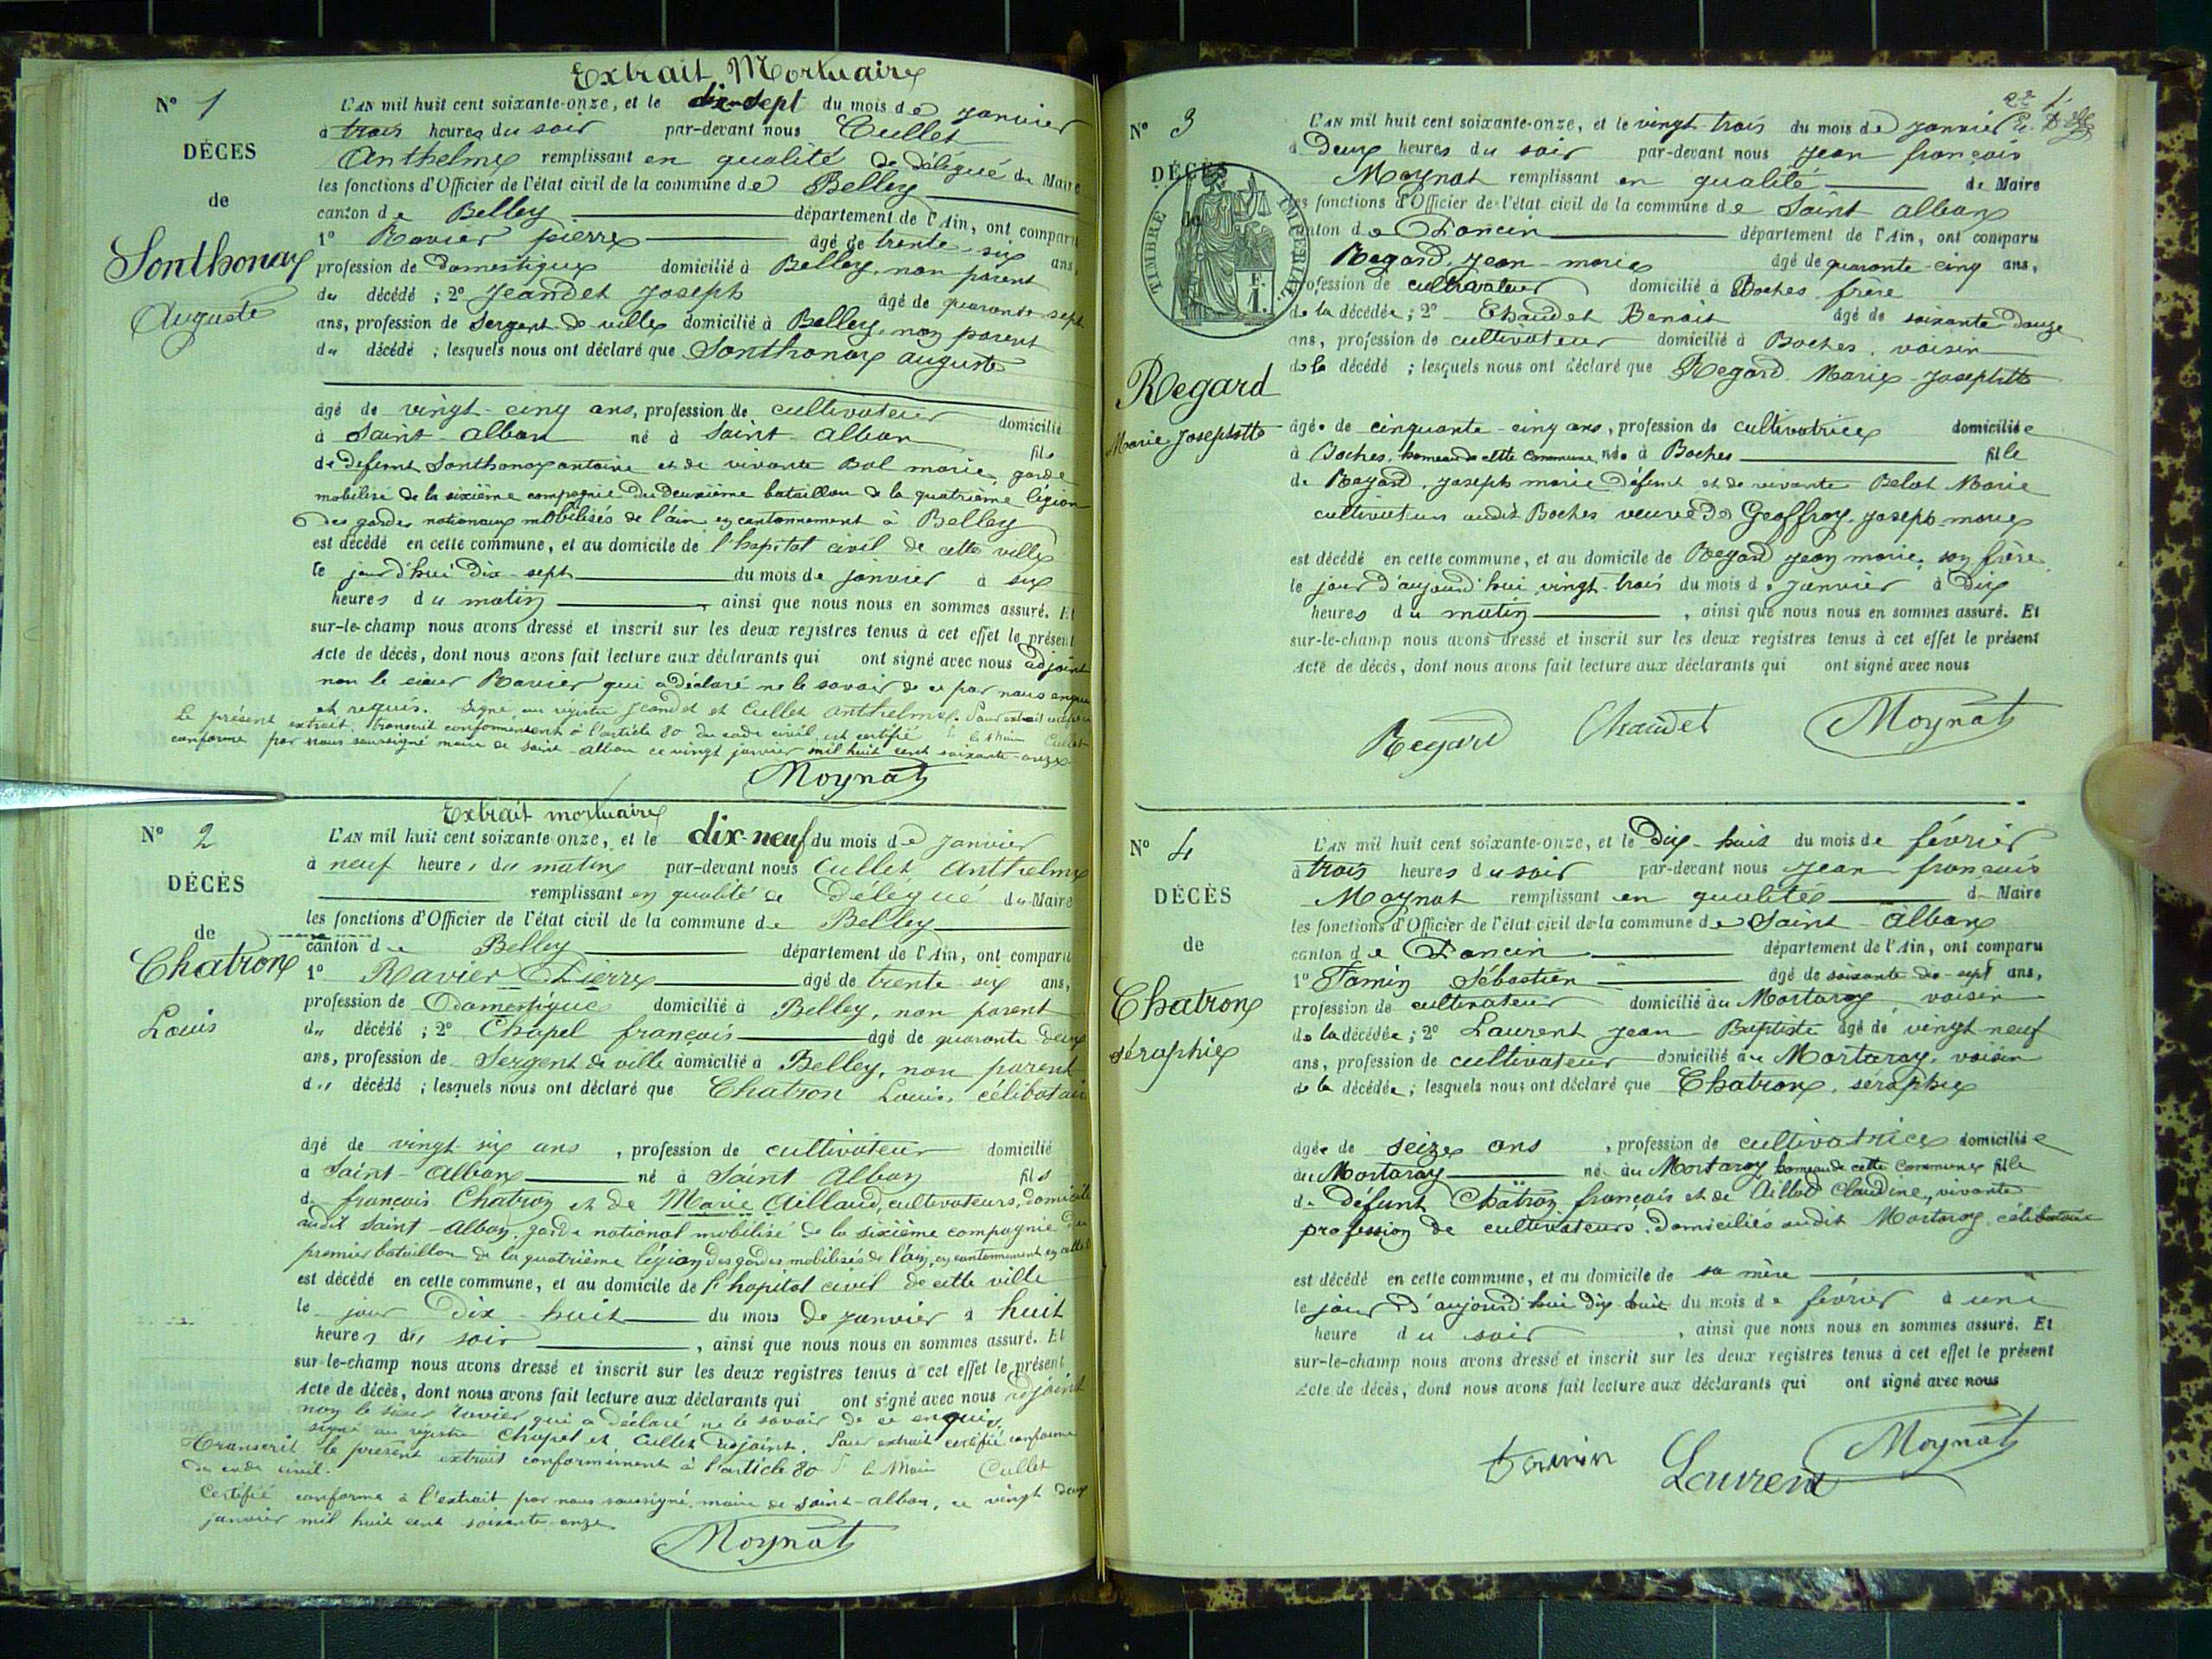 Extrait Mortuaire
N° 1
DÉCES
de
Sonthonax
Auguste
L'AN mil huit cent soixante-onze, et le dix-sept du mois de janvier
à trois heures du soir par-devant nous Cullet
Anthelme remplissant en qualité de délégué du Maire
les fonctions d'Officier de l'état civil de la commune de Belley
canton de Belley département de l'Ain, ont comparu
1° Ravier pierre âgé de trente-six ans,
profession de domestique domicilié à Belley, non parent
du décédé ; 2° Jeandet Joseph âgé de quarante sept
ans, profession de sergent de ville domicilié à Belley, non parent
du décédé ; lesquels nous ont déclaré que Sonthonax auguste
âgé de vingt-cinq ans, profession de cultivateur domicilié
à Saint-alban né à Saint-alban fils
de défunt Sonthonax antoine et de vivante Bal marie, garde
mobilisé de la sixième compagnie du deuxième bataillon de la quatrième légion
des gardes nationaux mobilisés de l'ain en cantonnement à Belley
est décédé en cette commune, et au domicile de l'hopital civil de cette ville
le jour d'hui dix-sept du mois de janvier à six
heures du matin, ainsi que nous nous en sommes assuré. Et
sur-le-champ nous avons dressé et inscrit sur les deux registres tenus à cet effet le présent
Acte de décès, dont nous avons fait lecture aux déclarants qui ont signé avec nous adjoint
non le sieur Ravier qui a déclaré ne le savoir de ce par nous enquis
et requis. Signé au registre Jeandet et Cullet anthelme. Pour extrait
Le présent extrait, transcrit conformément à l'article 80 du code civil, est certifié le Maire Cullet
conforme par nous soussigné maire de saint-alban ce vingt janvier mil huit cent soixante-onze
Moynat
Extrait mortuaire
N° 2
DÉCÈS
de
Chatron
Louis
L'AN mil huit cent soixante-onze, et le dix-neuf du mois de janvier
à neuf heures du matin par-devant nous Cullet Anthelme
remplissant en qualité de Délégué du Maire
les fonctions d'Officier de l'état civil de la commune de Belley
canton de Belley département de l'Ain, ont comparu
1° Ravier Pierre âgé de trente-six ans,
profession de Domestique domicilié à Belley, non parent
du décédé ; 2° Chapel françois âgé de quarante deux
ans, profession de Sergent de ville domicilié à Belley, non parent
du décédé ; lesquels nous ont déclaré que Chatron Louis, célibataire
âgé de vingt-six ans, profession de cultivateur domicilié
à Saint-Alban né à Saint Alban fils
de françois Chatron et de Marie Aillaud, cultivateurs, domiciliés
audit Saint-Alban, garde national mobilisé de la sixième compagnie du
premier bataillon de la quatrième légion des gardes mobilisés de l'ain, en cantonnement en cette
est décédé en cette commune, et au domicile de l'hopital civil de cette ville
le jour Dix-huit du mois de janvier à huit
heures du soir, ainsi que nous nous en sommes assuré. Et
sur-le-champ nous avons dressé et inscrit sur les deux registres tenus à cet effet le présent
Acte de décès, dont nous avons fait lecture aux déclarants qui ont signé avec nous adjoint
non le sieur Ravier qui a déclaré ne le savoir de ce enquis.
signé au registre Chapel et Cullet adjoint. Pour extrait certifié conforme
Transcrit le présent extrait conformément à l'article 80 le Maire Cullet
du code civil.
Certifié conforme à l'extrait par nous soussigné, maire de saint-alban, ce vingt deux
janvier mil huit cent soixante-onze
Moynat
N° 3
DÉCÈS
de
TIMBRE IMPERIAL
F.
1.
Regard
Marie Josephtte
L'AN mil huit cent soixante-onze, et le vingt-trois du mois de janvier
à Deux heures du soir par-devant nous Jean françois
Moynat remplissant en qualité de Maire
les fonctions d'Officier de l'état civil de la commune de Saint alban
canton de Poncin département de l'Ain, ont comparu
Regard, Jean-marie âgé de quarante-cinq ans,
profession de cultivateur domicilié à Boches frère
de la décédée ; 2° Chaudet Benoit âgé de soixante-douze
ans, profession de cultivateur domicilié à Boches, voisin
de la décédé ; lesquels nous ont déclaré que Regard Marie-Josephtte
âgée de cinquante-cinq ans, profession de cultivatrice domiciliée
à Boches, hameau de cette commune, née à Boches fille
de Regard, Joseph marie défunt et de vivante Belot Marie
cultivateurs audit Boches veuve de Geoffroy, Joseph-marie
est décédé en cette commune, et au domicile de Regard Jean marie, son frère
le jour d'aujourd'hui vingt-trois du mois de janvier à dix
heures du matin, ainsi que nous nous en sommes assuré. Et
sur-le-champ nous avons dressé et inscrit sur les deux registres tenus à cet effet le présent
Acte de décès, dont nous avons fait lecture aux déclarants qui ont signé avec nous
Regard Chaudet Moynat
N° 4
DÉCÈS
de
Chatron
séraphie
L'AN mil huit cent soixante-onze, et le Dix-huit du mois de février
à trois heures du soir par-devant nous Jean françois
Moynat remplissant en qualité de Maire
les fonctions d'Officier de l'état civil de la commune de Saint-Alban
canton de Poncin département de l'Ain, ont comparu
1° Famin Sébastien âgé de soixante-dix-sept ans,
profession de cultivateur domicilié au Mortaray voisin
de la décédée ; 2° Laurent Jean Baptiste âgé de vingt neuf
ans, profession de cultivateur domicilié au Mortaray, voisin
de la décédée ; lesquels nous ont déclaré que Chatron, séraphie
âgée de seize ans, profession de cultivatrice domiciliée
au Mortaray né au Mortaray hameau de cette commune fille
de défunt Chatron françois et de Aillod Claudine, vivante
profession de cultivateurs, domiciliés audit Mortaray, célibataire
est décédé en cette commune, et au domicile de sa mère
le jour d'aujourd'hui dix huit du mois de février à une
heure du soir, ainsi que nous nous en sommes assuré. Et
sur-le-champ nous avons dressé et inscrit sur les deux registres tenus à cet effet le présent
Acte de décès, dont nous avons fait lecture aux déclarants qui ont signé avec nous
famin Laurent Moynat